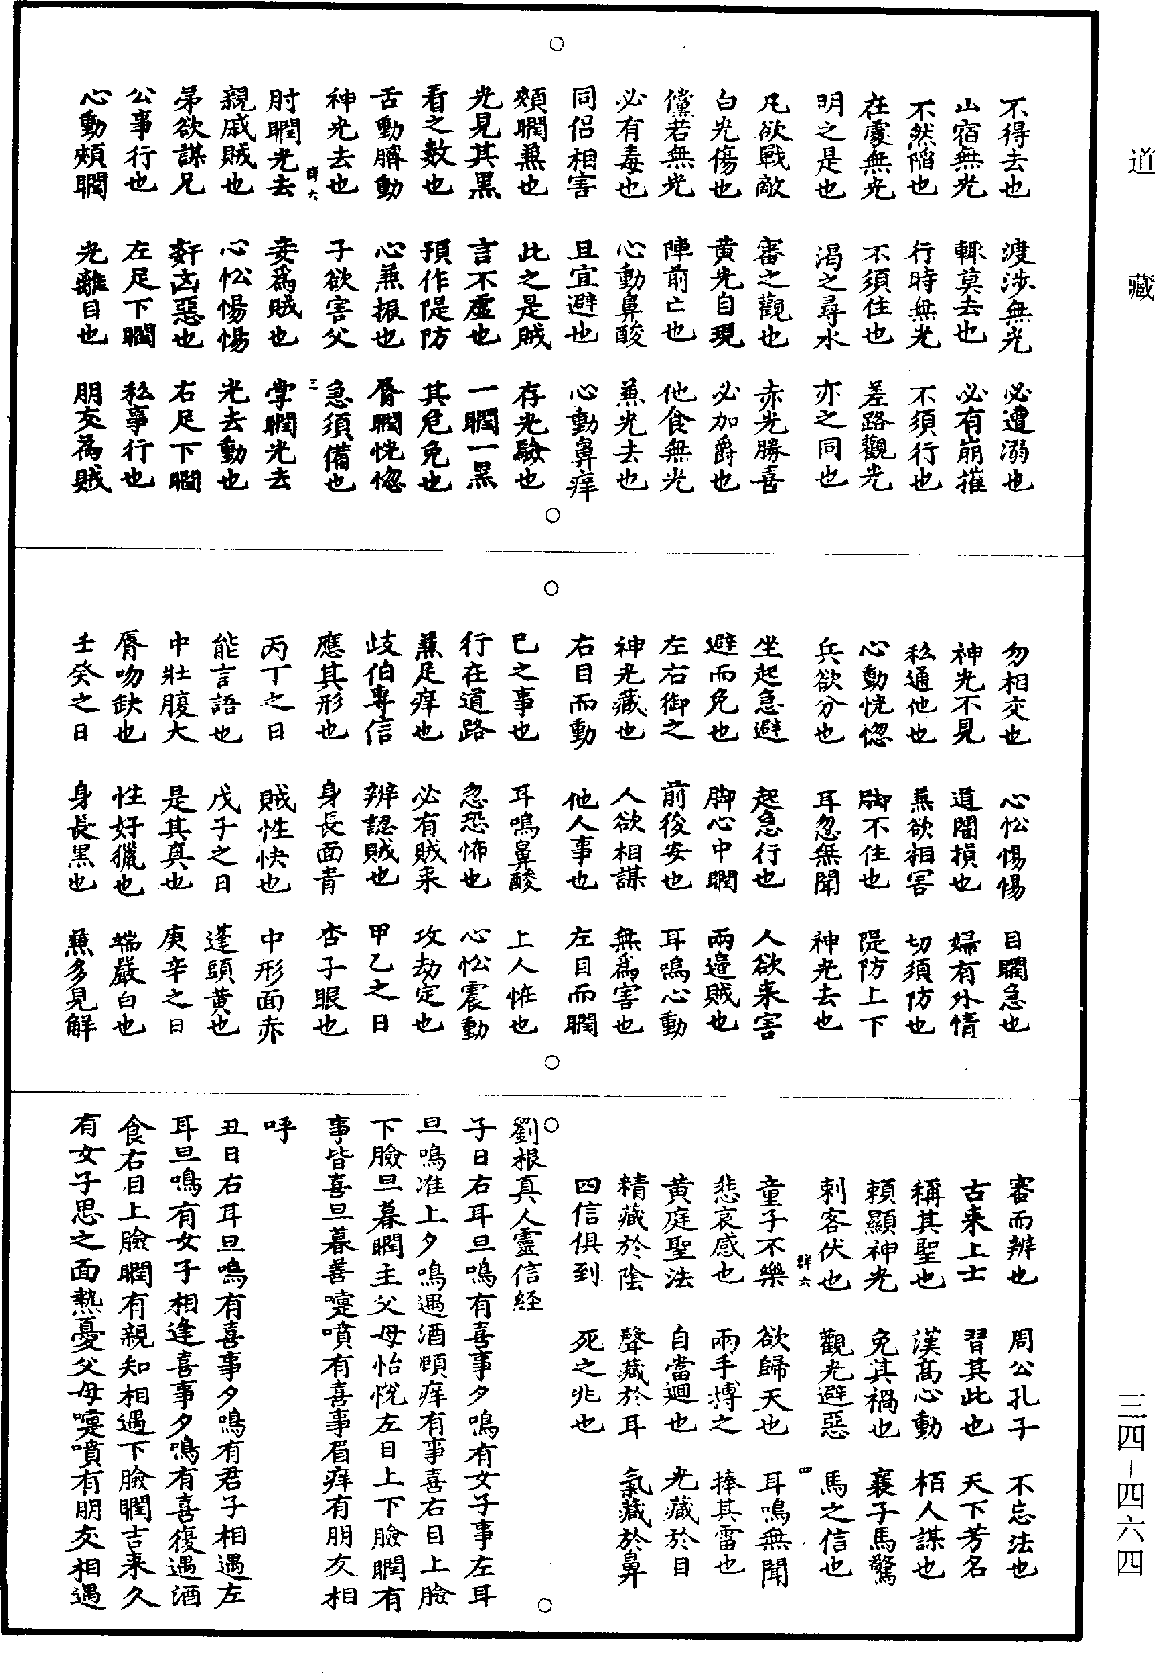 道藏
不得去也 渡涉無光 必遭溺也
山宿無光 輒莫去也 必有崩摧
不然陷也 行時無光 不須行也
在處無光 不須住也 差路觀光
明之是也 渴之尋水 亦之同也
凡欲戰敵 審之觀也 赤光勝喜
白光傷也 黃光自現 必加爵也
儻若無光 陣前亡也 他食無光
必有毒也 心動鼻酸 無光去也
同侶相害 且宜避也 心動鼻痒
頰瞤無也 此之是賊 存光驗也
光見其黑 言不虛也 一瞤一黑
看之數也 預作隄防 其危免也
舌動臍動 心無振也 脣瞤恍惚
神光去也 子欲害父 急須備也
群六 三
肘瞤光去 妾為賊也 掌瞤光去
親戚賊也 心忪惕惕 光去動也
弟欲謀兄 姧凶惡也 右足下瞤
公事行也 左足下瞤 私事行也
心動頰瞤 光離目也 朋友為賊
勿相交也 心忪惕惕 目瞤急也
神光不見 道闇損也 婦有外情
私通他也 兼欲相害 切須防也
心動恍惚 脚不住也 隄防上下
兵欲分也 耳忽無聞 神光去也
坐起急避 起急行也 人欲来害
避而免也 脚心中瞤 兩邊賊也
左右御之 前後安也 耳鳴心動
神光藏也 人欲相謀 無為害也
右目而動 他人事也 左目而瞤
已之事也 耳鳴鼻酸 上人恠也
行在道路 忽恐怖也 心忪震動
兼足痒也 必有賊来 攻劫定也
歧伯專信 辨認賊也 甲乙之日
應其形也 身長面青 杏子眼也
丙丁之日 賊性快也 中形面赤
能言語也 戊子之日 蓬頭黃也
中壯腹大 是其真也 庚辛之日
脣吻缺也 性好獵也 端嚴白也
壬癸之日 身長黑也 兼多見解
審而辨也 周公孔子 不忘法也
古来上士 習其此也 天下芳名
稱其聖也 漢高心動 栢人謀也
賴顯神光 免其禍也 襄子馬驚
刺客伏也 觀光避惡 馬之信也
群六 四
童子不樂 欲歸天也 耳鳴無聞
悲哀感也 兩手搏之 捧其雷也
黃庭聖法 自當廻也 光藏於目
精藏於陰 聲藏於耳 氣藏於鼻
四信俱到 死之兆也
劉根真人靈信経
子日右耳旦鳴有喜事夕鳴有女子事左耳
旦鳴准上夕鳴遇酒頤痒有事喜右目上臉
下臉旦暮瞤主父母怡悅左目上下臉瞤有
事皆喜旦暮善嚏噴有喜事眉痒有朋友相
呼
丑日右耳旦鳴有喜事夕鳴有君子相遇左
耳旦鳴有女子相逢喜事夕鳴有喜復遇酒
食右目上臉瞤有親知相遇下臉瞤吉来久
有女子思之面熱憂父母嚏噴有朋友相遇
三四-四六四